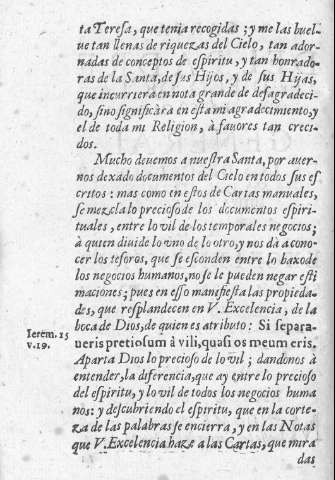 ta Teresa, que tenia recogidas; y me las buel-
ue tan llenas de riquezas del Cielo, tan ador-
nadas de conceptos de espiritu, y tan honrado-
ras de la Santa, de sus Hijos, y de sus Hijas,
que incurriera en nota grande de desagradeci-
do, sino significàra en esta mi agradecimiento, y
el de toda mi Religion, à fauores tan creci-
dos.
Mucho deuemos a nuestra Santa, por auer-
nos dexado documentos del Cielo en todos sus es
critos: mas como en estos de Cartas manuales,
se mezcla lo precioso de los documentos espiri-
tuales, entre lo vil de los temporales negocios;
à quien diuide lo vno de lo otro, y nos dà a cono-
cer los tesoros, que se esconden entre lo baxo de
los negocios humanos, no se le pueden negar esti
maciones; pues en esso manifiesta las propieda-
des, que resplandecen en V. Excelencia, de la
boca de Dios, de quien es atributo: Si separa-
Ierem. 15
v. 19.
ueris pretiosum à vili, quasi os meum eris.
Aparta Dios lo precioso de lo vil; dandonos à
entender, la diferencia, que ay entre lo precioso
del espiritu, y lo vil de todos los negocios huma
nos: y descubriendo el espiritu, que en la corte-
za de las palabras se encierra, y en las Notas
que V. Excelencia haze a las Cartas, que mira
das